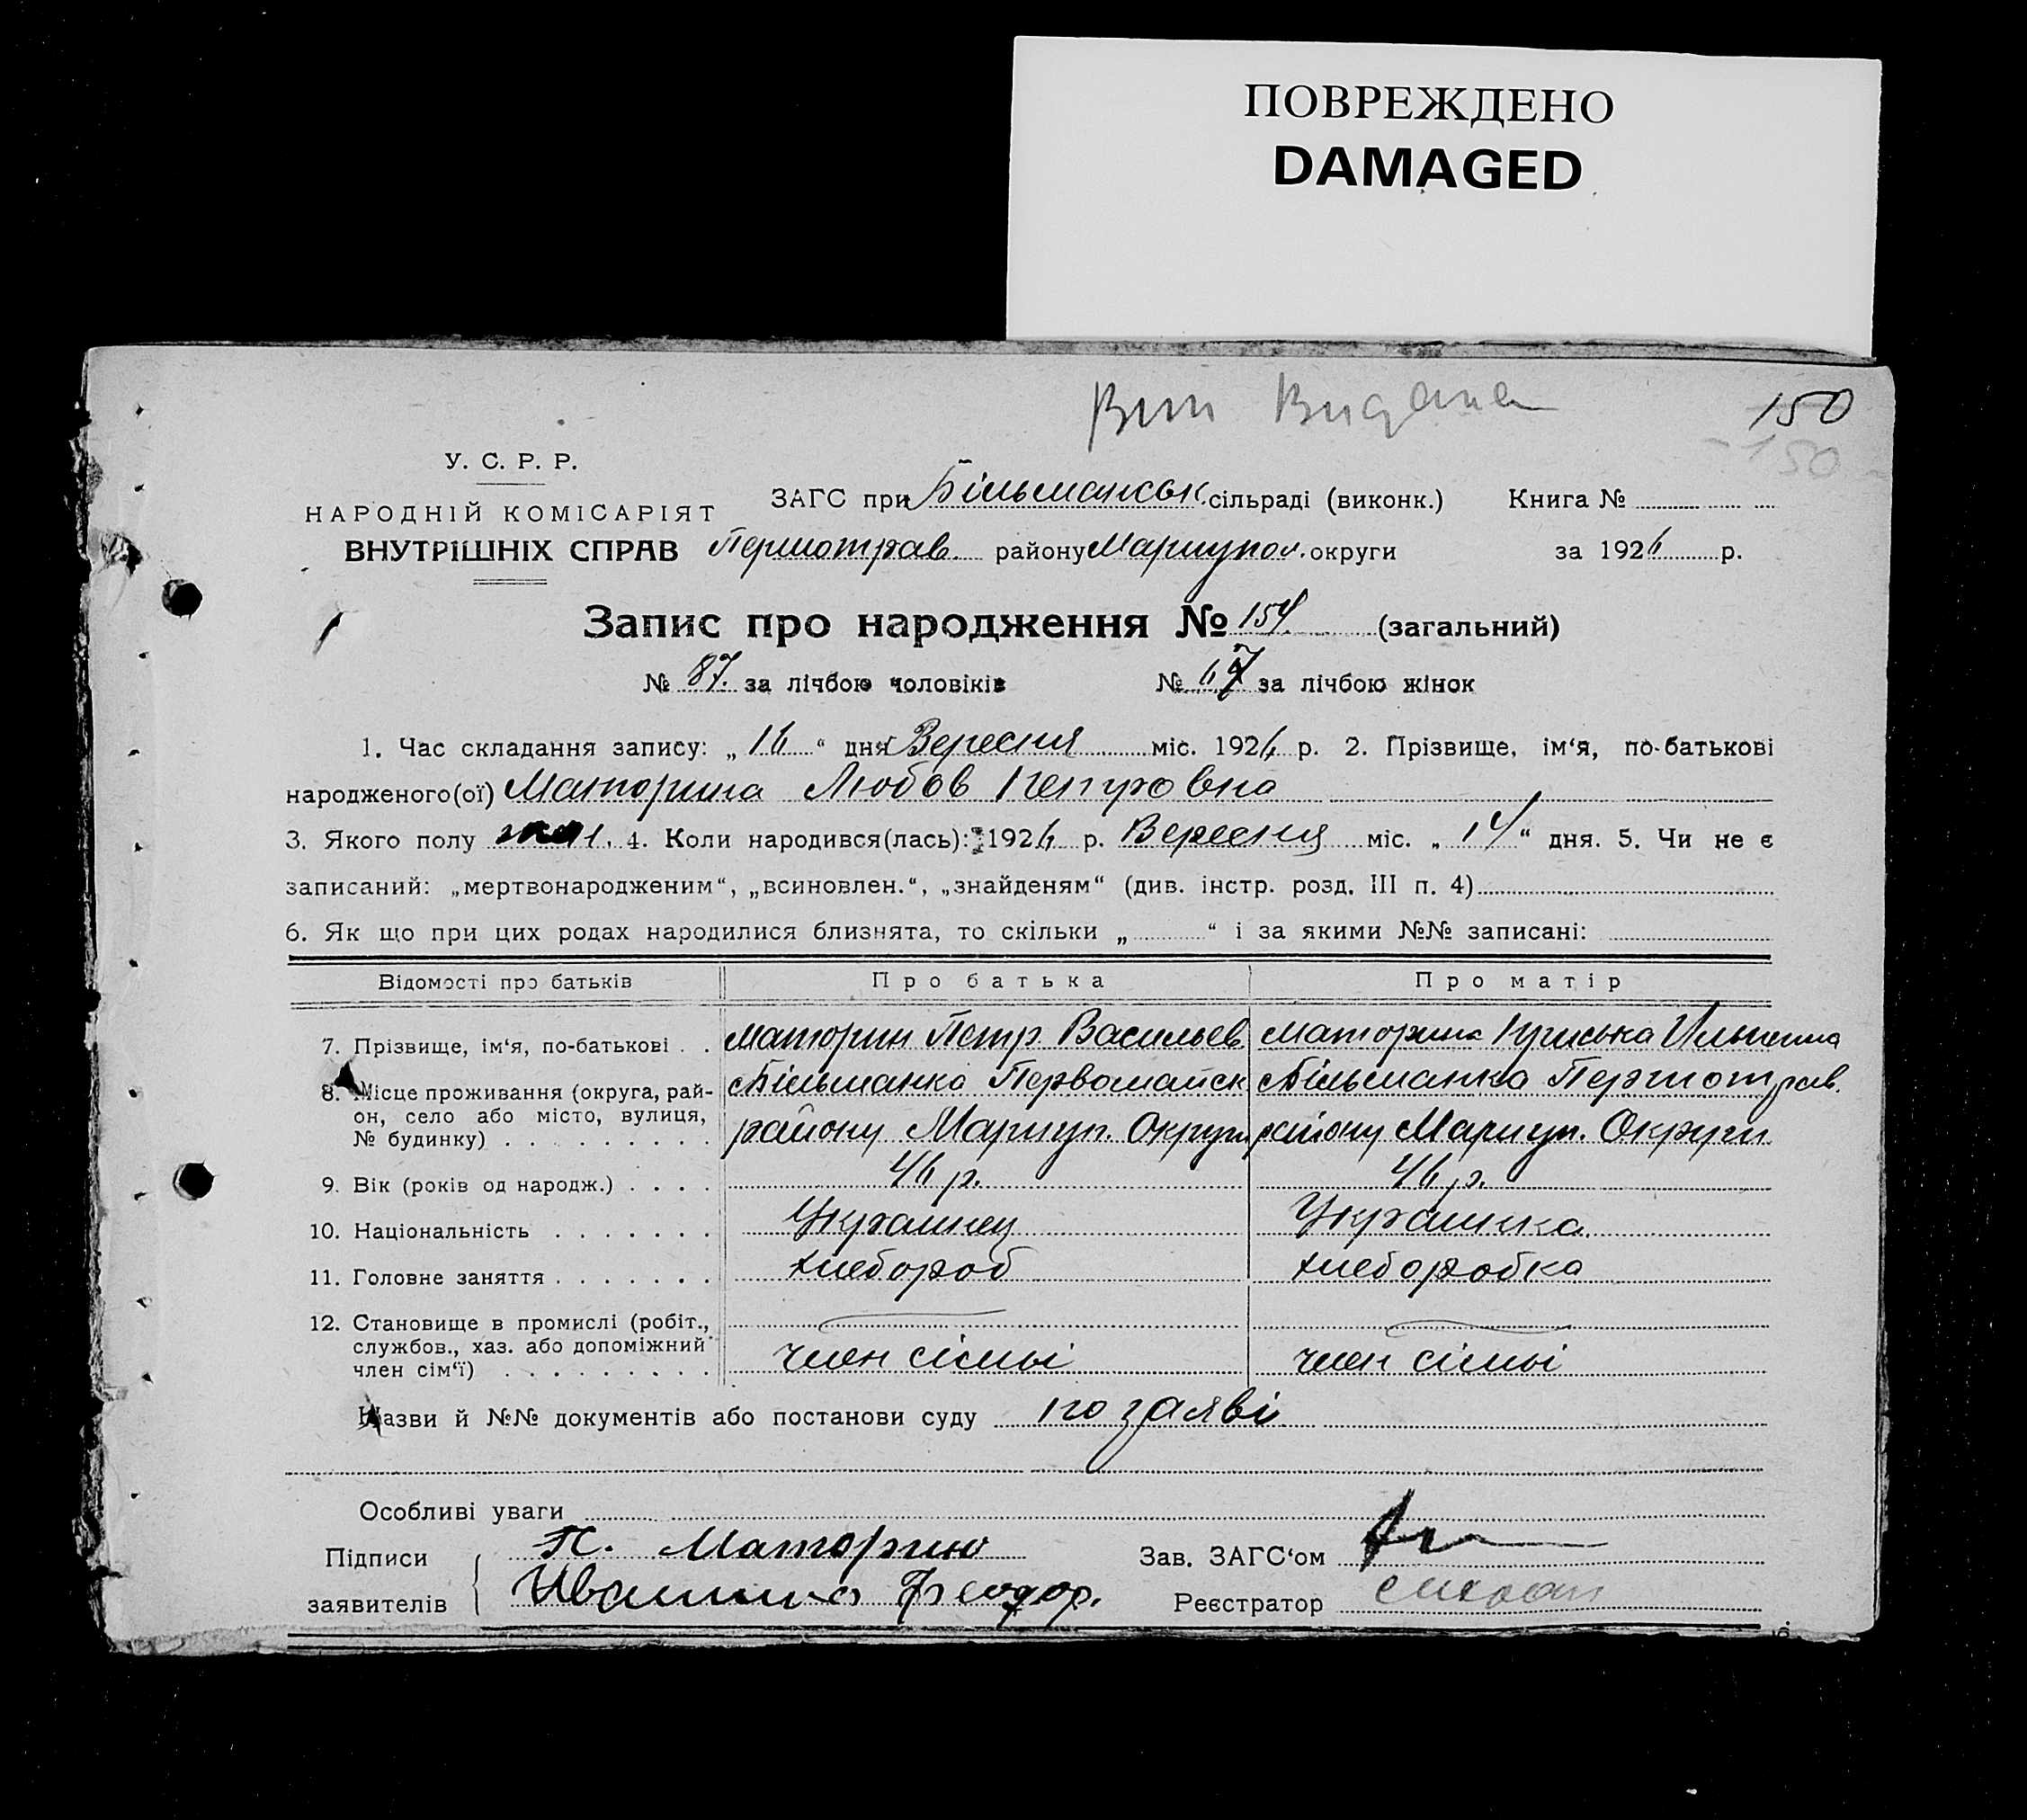 ПОВРЕЖДЕНО
DAMAGED
Вип Видана
150
150
У. С. Р. Р.
НАРОДНІЙ КОМІСАРІЯТ
ВНУТРІШНІХ СПРАВ
ЗАГС при Більманськ. сільраді (виконк.) Книга №
Першотрав. району Маріупол. округи за 1926 р.
Запис про народження № 154 (загальний)
№ 87. за лічбою чоловіків № 67 за лічбою жінок
1. Час складання запису: „16“ дня Вересня міс. 1926 р. 2. Прізвище, ім‘я, по-батькові
народженого(ої) Маторина Любов Петровна
3. Якого полу жін. 4. Коли народився(лась): 1926 р. Вересня міс. „14“ дня. 5. Чи не є
записаний: „мертвонародженим“, „всиновлен.“, „знайденям“ (див. інстр. розд. III п. 4)
6. Як що при цих родах народилися близнята, то скільки „ “ і за якими №№ записані:
Відомості про батьків Про батька Про матір
7. Прізвище, ім‘я, по-батькові . . Маторин Петр Васильев Маторина Ильинина
8. Місце проживання (округа, рай- Більманка Первомайск Більманка Першотрав.
он, село або місто, вулиця,
№ будинку) району Мариуп. Округи району Мариуп. Округи
9. Вік (років од народж.) 46 р. 46 р.
10. Національність Украинец Украинка
11. Головне заняття хлебороб хлеборобка
12. Становище в промислі (робіт.,
службов., хаз. або допоміжний
член сім‘ї) член сімьі член сімьі
Назви й №№ документів або постанови суду по заяві
Особливі уваги
Підписи П. Маторин Зав. ЗАГС‘ом
заявителів Феодор. Реєстратор